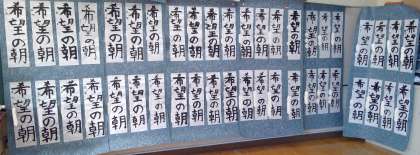 希望の朝
希望の朝
希望の朝
希望の朝
希望の朝
希望の朝
希望の朝
希望の朝
希望の朝
希望の朝
希望の朝
希望の朝
希望の朝
希望の朝
希望の朝
希望の朝
希望の朝
希望の朝
希望の朝
希望の朝
希望の朝
希望の朝
希望の朝
希望の朝
希望の朝
希望の朝
希望の朝
希望の朝
希望の朝
希望の朝
希望の朝
希望の朝
希望の朝
希望の朝
希望の朝
希望の朝
希望の朝
希望の朝
希望の朝
希望の朝
希望の朝
希望の朝